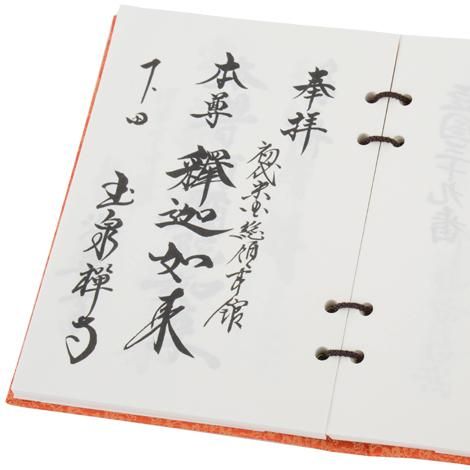 奉拝
初代米国総領事館
本尊
釋迦如来
下田
玉泉禪寺